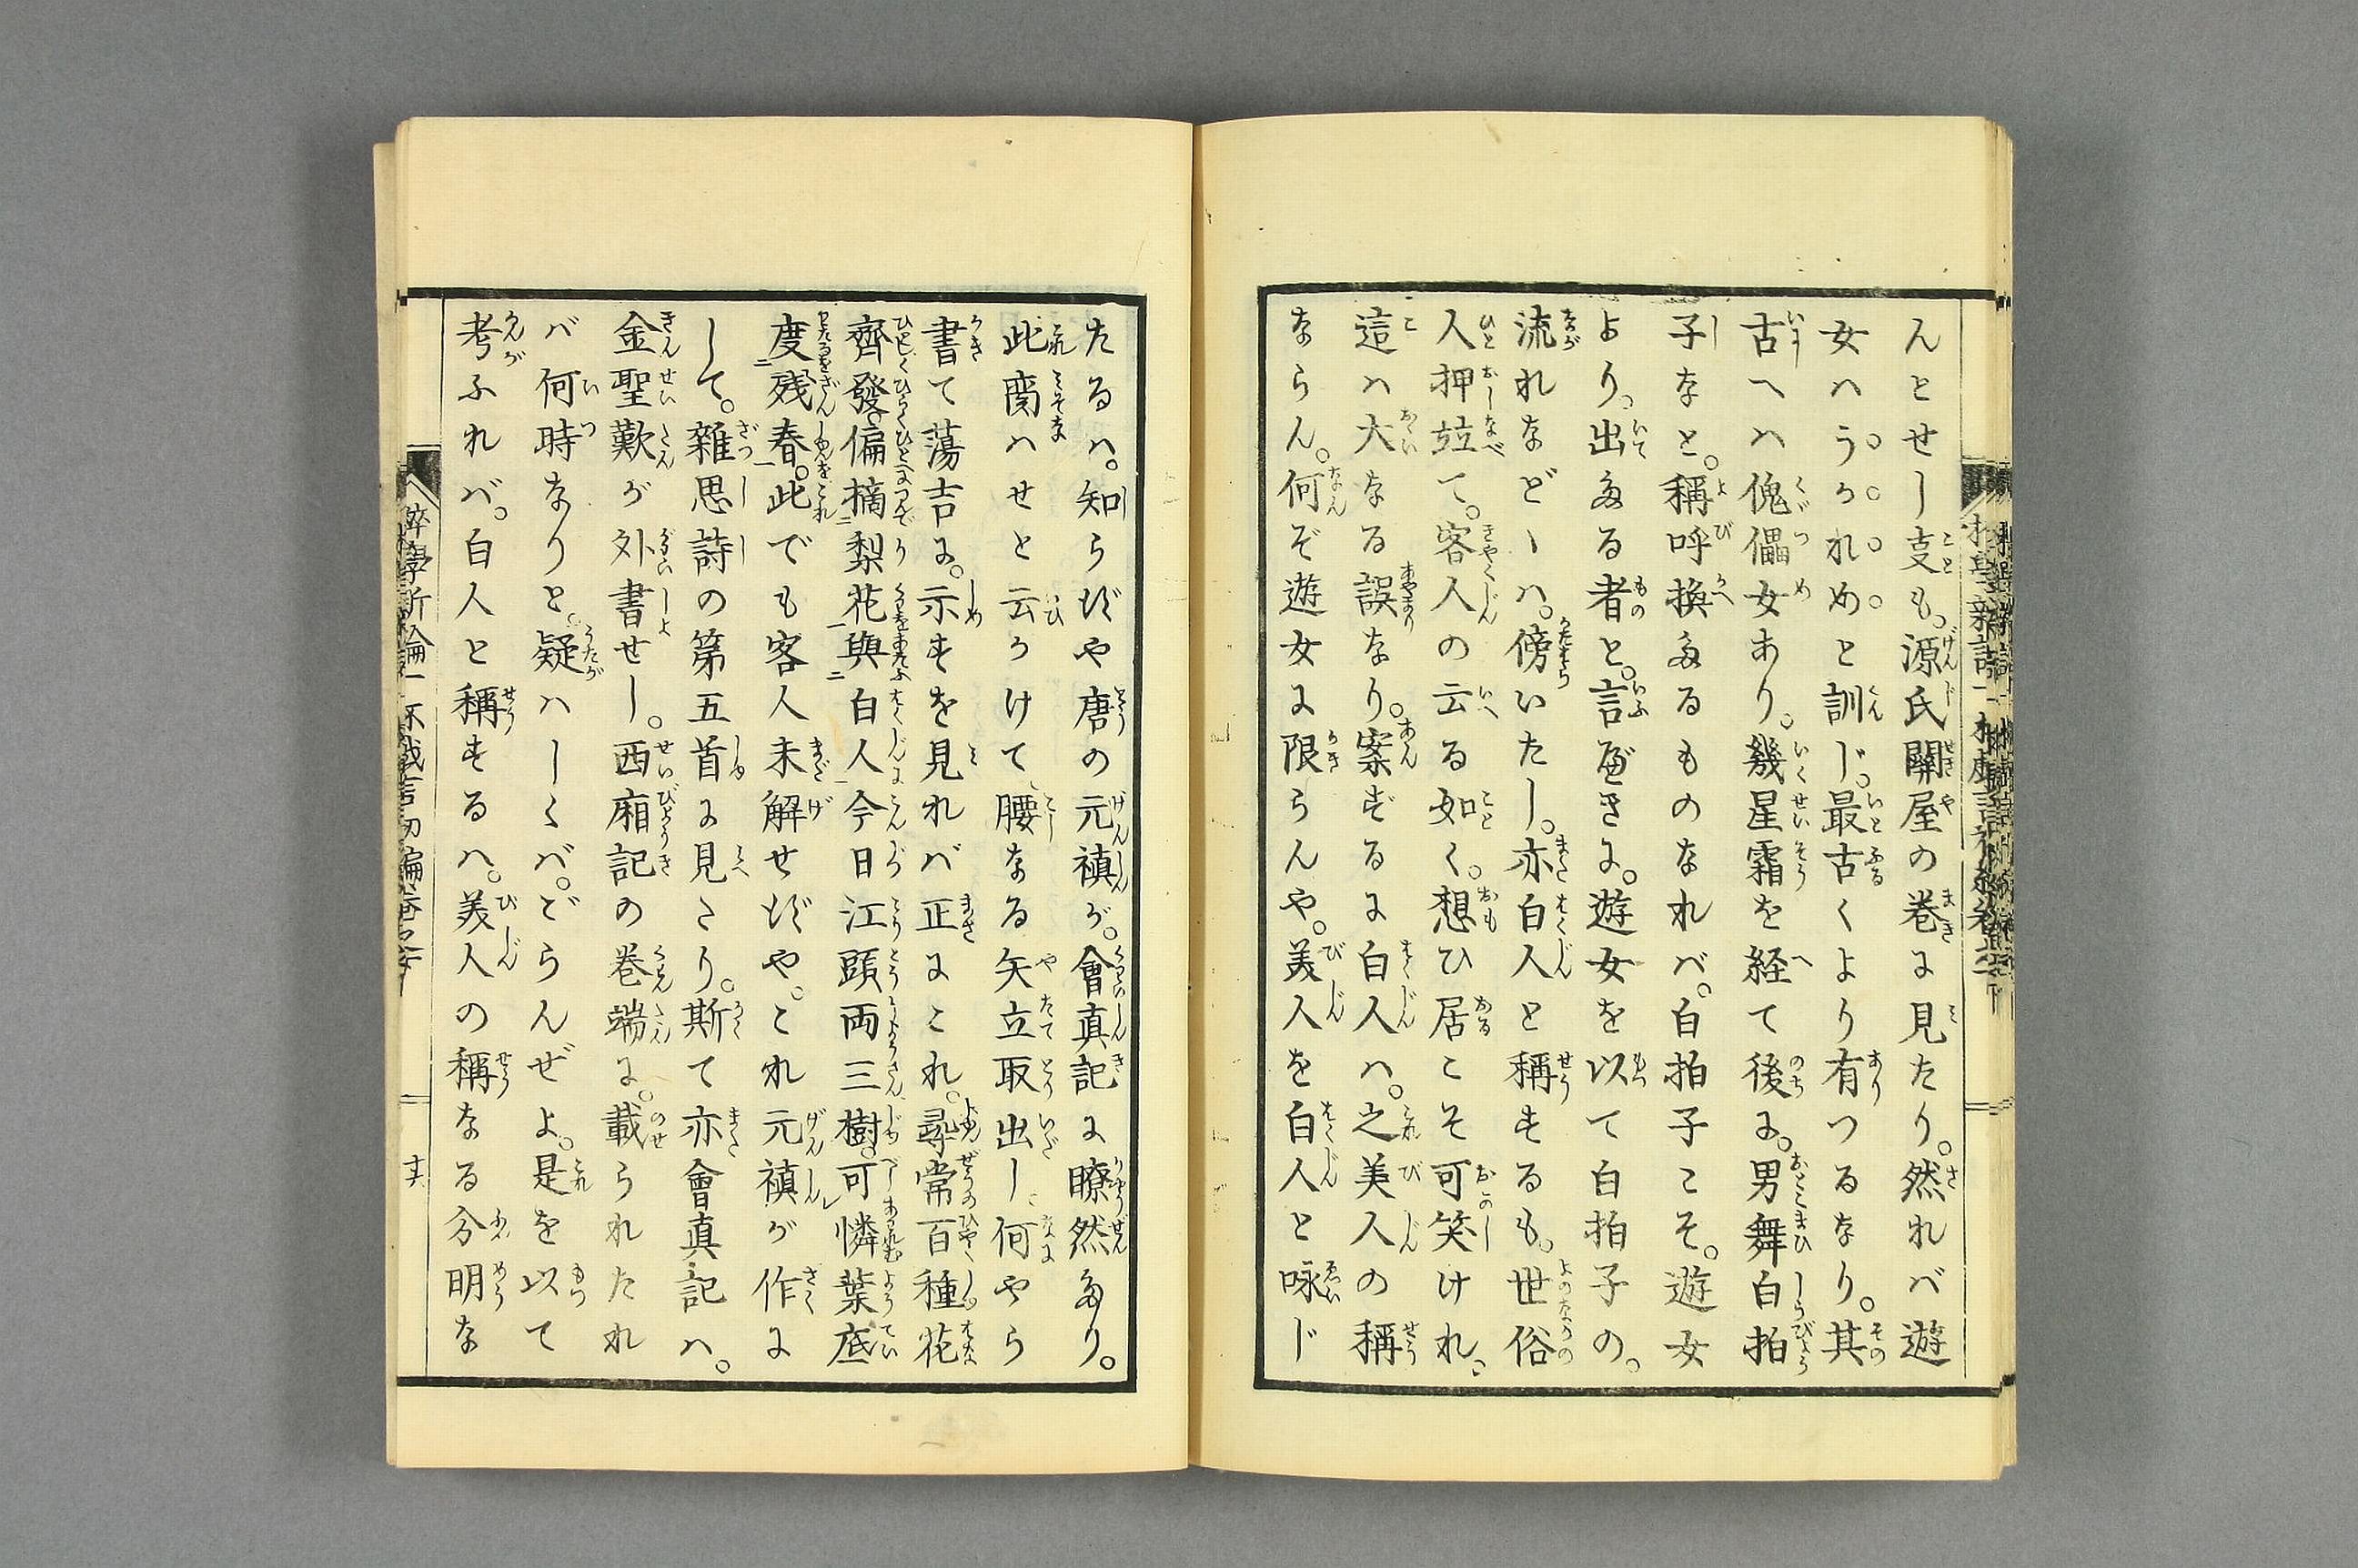 んとせし㕝も。源氏關屋の巻に見たり。然れバ遊
女ハうかれめと訓じ。最古くより有つるなり。其
古へハ傀儡女あり。幾星霜を経て後に。男舞白拍
子なと。稱呼換たるものなれバ。白拍子こそ。遊女
より。出たる者と。言べきに。遊女を以て白拍子の。
流れなどゝハ。傍いたし。亦白人と稱するも。世俗
人押竝て。客人の云る如く。想ひ居こそ可笑けれ。
這ハ大なる誤なり。案ずるに白人ハ。之美人の稱
ならん。何ぞ遊女に限らんや。美人を白人と咏じ
たるハ。知らずや唐の元禛が。會真記に瞭然たり。
此ハせと云かけて、腰なる矢立取出し、何やら
書て蕩吉に。示すを見れバ正にこれ。尋常百種花
齊發。偏摘梨花與白人。今日江頭両三樹。可憐葉底
度残春。此でも客人未解せずや。これ元禛が作に
して。雑思詩の第五首に見へたり。斯て亦會真記ハ。
金聖歎が外書せし。西廂記の巻端に。載られたれ
バ何時なりと。疑ハしくバ。ごらんぜよ。是を以て
考ふれバ。白人と稱するハ。美人の稱なる分明な
十六